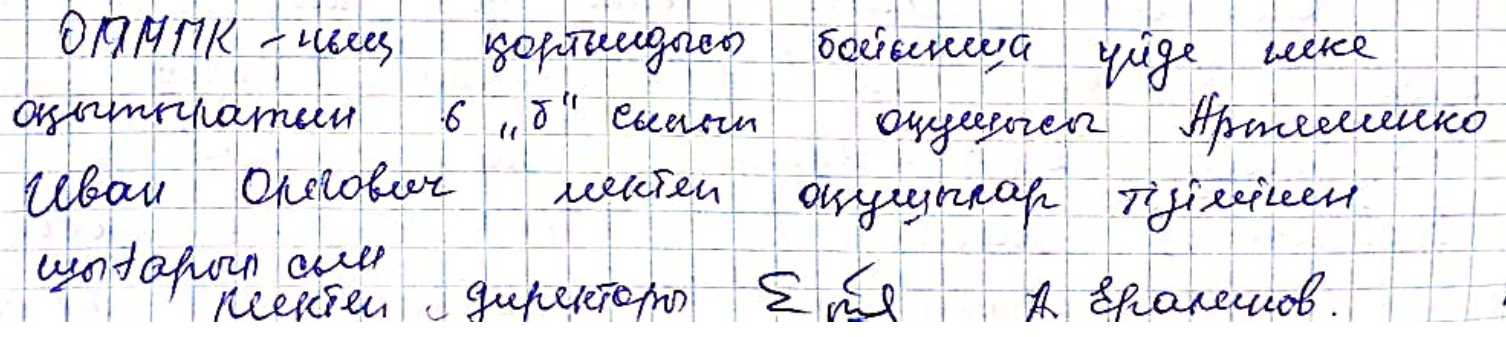 ОПМПК -ның қортындысы бойынша үйде жеке
оқытылатын 6 „б" сынып оқушысы Артеменко
Иван Олегович мектеп оқушылар тізімінен
шығарылсын
Мектеп директоры А. Ералинов.